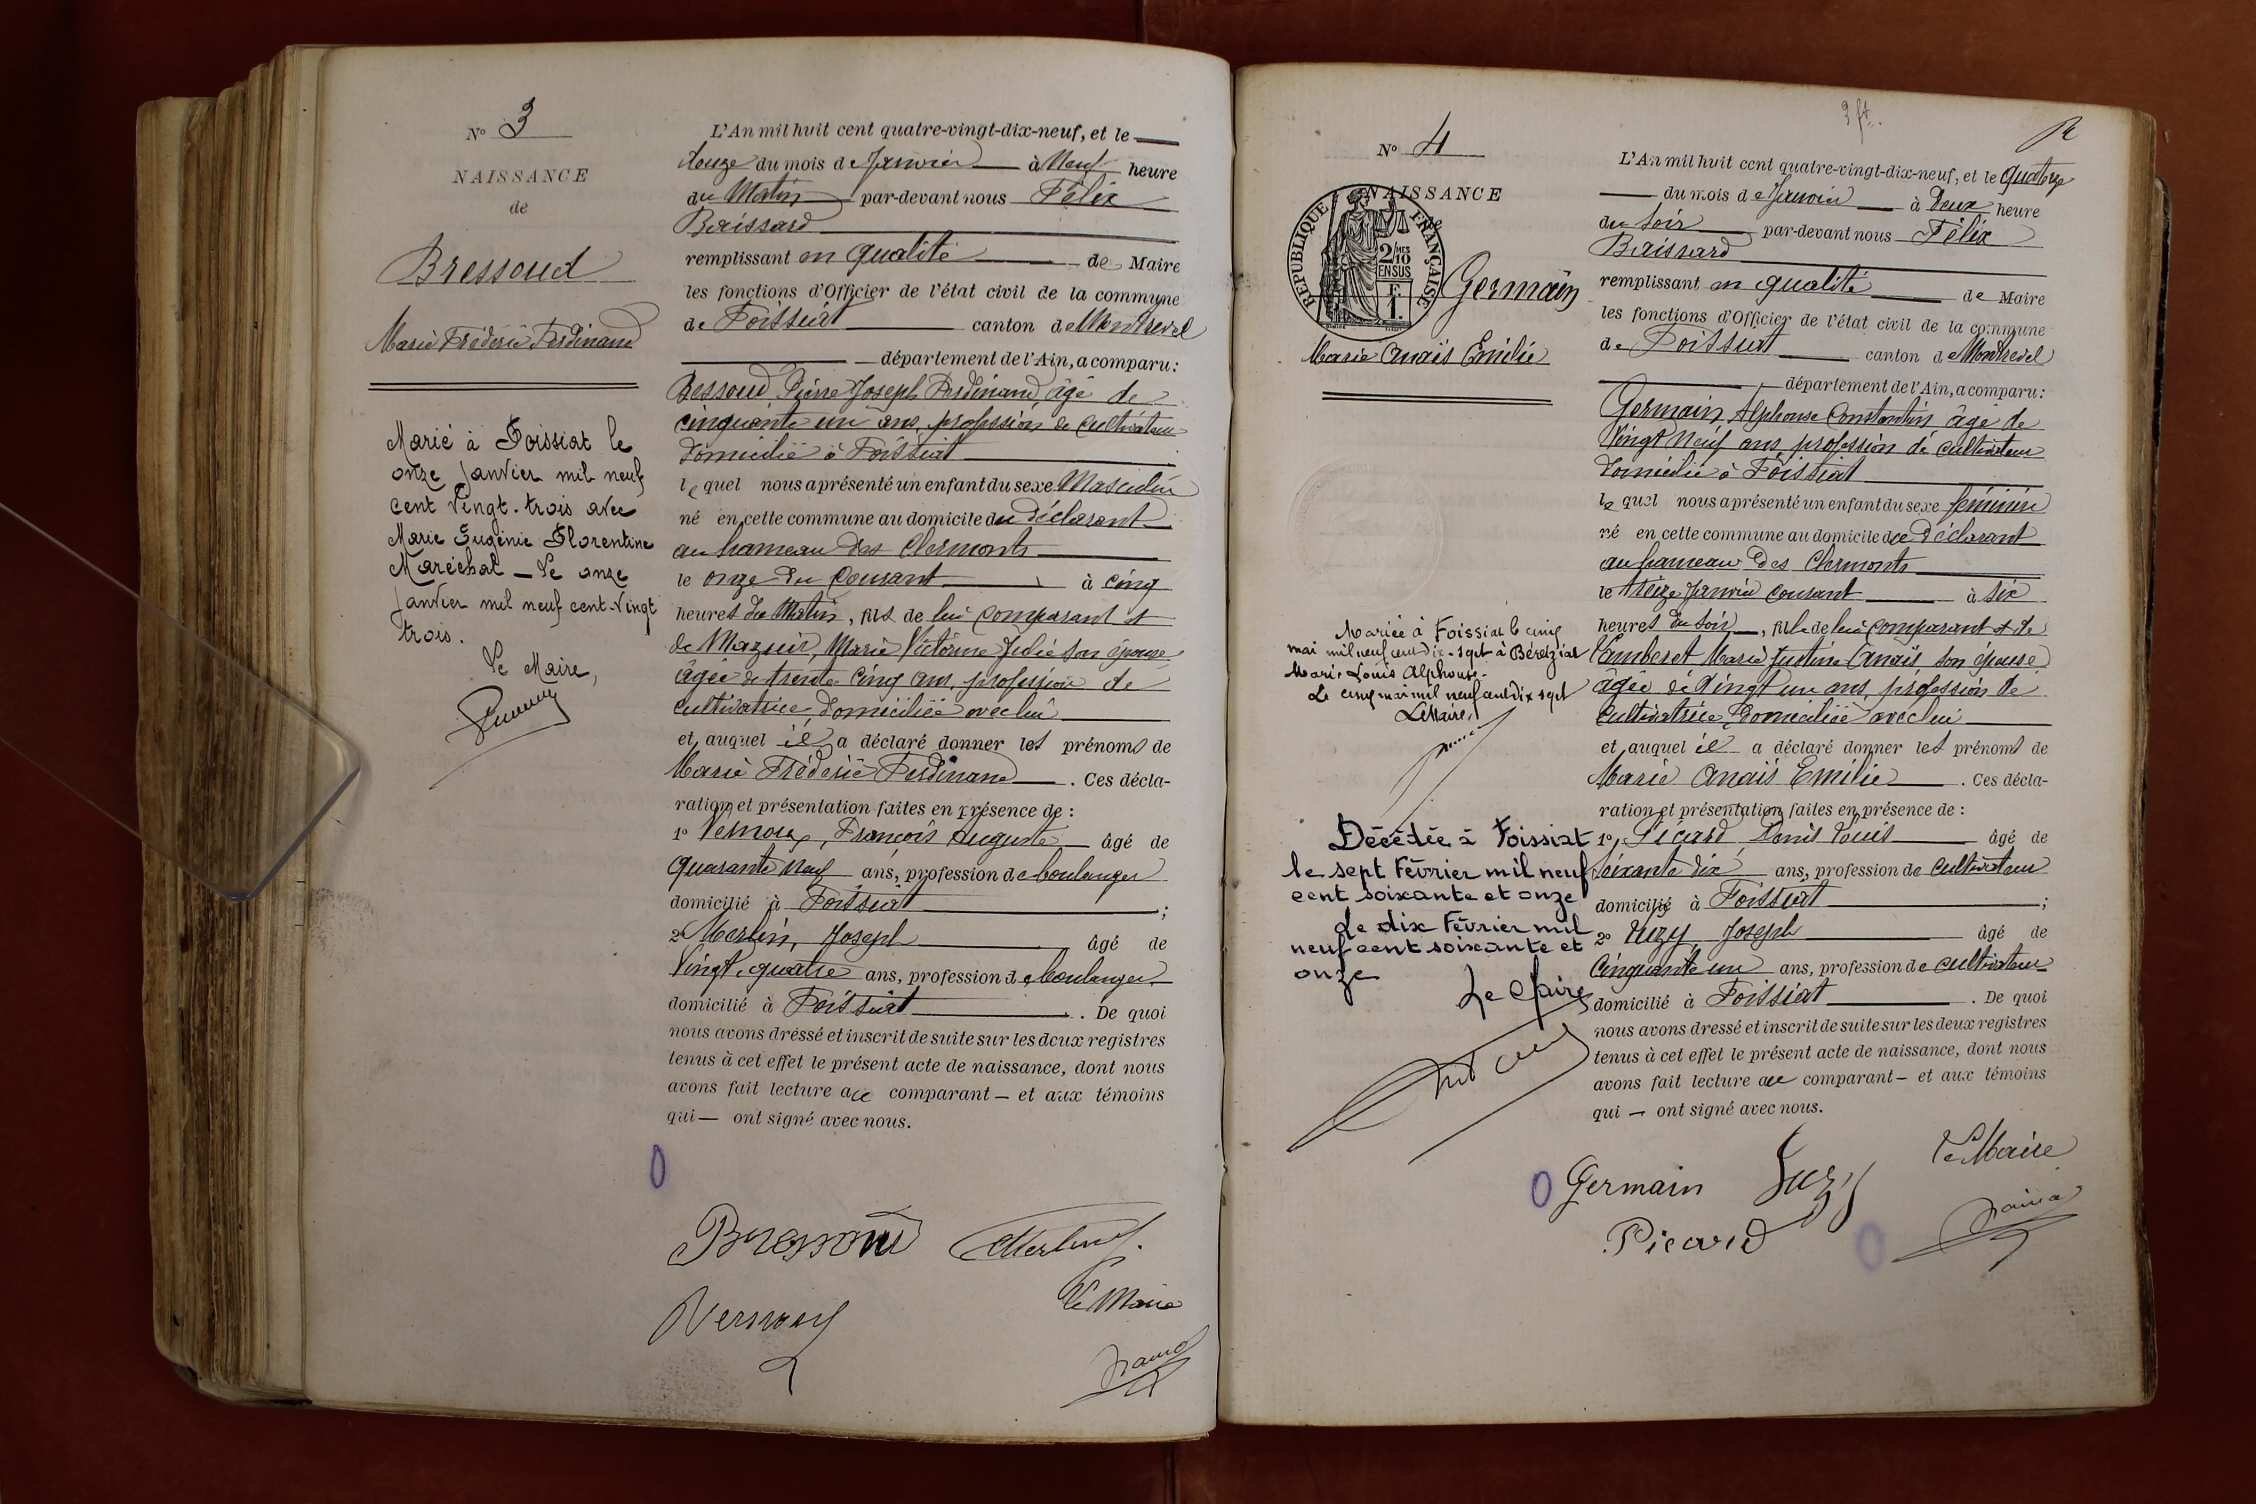 N° 3
NAISSANCE
de
Bressoud
Marie Frédéric Ferdinand
Marié à Foissiat le
onze Janvier mil neuf
cent vingt-trois avec
Marie Eugénie Florentine
Maréchal — Le onze
Janvier mil neuf cent vingt
trois.
Le Maire,
L'An mil huit cent quatre-vingt-dix-neuf, et le
douze du mois de Janvier à Neuf heure
du Matin par-devant nous Félix
remplissant en qualité de Maire
les fonctions d'Officier de l'état civil de la commune
de Foissiat canton de Montrevel
département de l'Ain, a comparu :
Bessoud Pierre Joseph Ferdinand, âgé de
cinquante un ans, profession de cultivateur
domicilié à Foissiat
lequel nous a présenté un enfant du sexe Masculin
né en cette commune au domicile du déclarant
au hameau des Clermonts
le onze du courant à cinq
heures du Matin, fils de lui comparant et
de Mazuir, Marie Victorine Julie son épouse
âgée de trente cinq ans, profession de
cultivatrice domiciliée avec lui
et auquel il a déclaré donner les prénoms de
Marie Frédéric Ferdinand. Ces décla-
ration et présentation faites en présence de :
1° Vernoux, François Auguste âgé de
quarante neuf ans, profession de boulanger
domicilié à Foissiat ;
2° Merlin, Joseph âgé de
Vingt quatre ans, profession de boulanger
domicilié à Foissiat. De quoi
nous avons dressé et inscrit de suite sur les deux registres
tenus à cet effet le présent acte de naissance, dont nous
avons fait lecture au comparant — et aux témoins
qui — ont signé avec nous.
Bressoud Merlin
Le Maire
Vernoux
N° 4
NAISSANCE
de
RÉPUBLIQUE FRANÇAISE
2/10 EN SUS
Germain
Marie Anaïs Emilie
Mariée à Foissiat le cinq
mai mil neuf cent dix-sept à Béréziat
Marie Louis Alphonse.
Le cinq mai mil neuf cent dix sept
Le Maire,
Décédée à Foissiat
le sept Février mil neuf
cent soixante et onze
Le dix Février mil
neuf cent soixante et
onze
Le Maire
L'An mil huit cent quatre-vingt-dix-neuf, et le quatorze
du mois de Janvier à Deux heure
du Soir par-devant nous Félix
remplissant en qualité de Maire
les fonctions d'Officier de l'état civil de la commune
de Foissiat canton de Montrevel
département de l'Ain, a comparu :
Germain, Alphonse Constantin âgé de
Vingt Neuf ans, profession de cultivateur
domicilié à Foissiat
lequel nous a présenté un enfant du sexe féminin
né en cette commune au domicile du déclarant
au hameau des Clermonts
le treize Janvier courant à six
heures du soir, fille de lui comparant et de
Vamberet Marie Justine Anaïs son épouse
âgée de vingt un ans, profession de
cultivatrice, domiciliée avec lui
et auquel il a déclaré donner les prénoms de
Marie Anaïs Emilie. Ces décla-
ration et présentation faites en présence de :
1° Picard Louis âgé de
soixante dix ans, profession de cultivateur
domicilié à Foissiat ;
2° Joseph âgé de
Cinquante un ans, profession de cultivateur
domicilié à Foissiat. De quoi
nous avons dressé et inscrit de suite sur les deux registres
tenus à cet effet le présent acte de naissance, dont nous
avons fait lecture au comparant — et aux témoins
qui — ont signé avec nous.
Le Maire
Germain
Picard